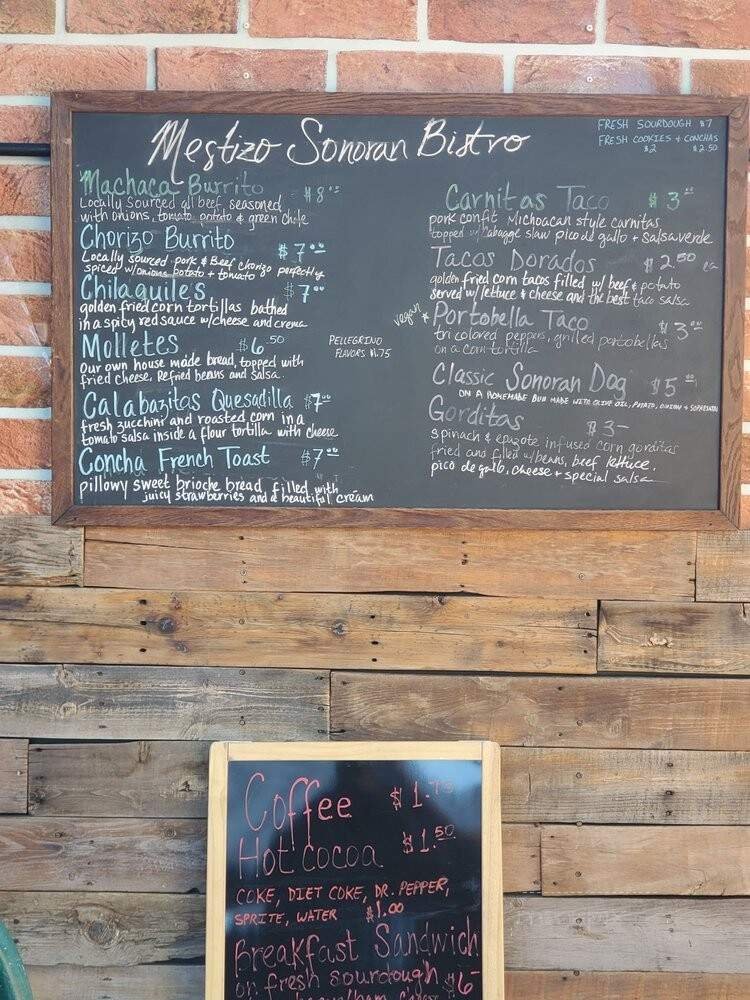 Mestizo Sonoran Bistro
FRESH SOURDOUGH $7
FRESH COOKIES + CONCHAS
$2 $2.50
Machaca Burrito $8
Locally Sourced all beef, seasoned
with onions, tomato, potato & green chile
Chorizo Burrito $7.00
Locally sourced pork & Beef chorizo perfectly
spiced w/onions potato + tomato
Chilaquile's $7.00
golden fried corn tortillas bathed
in a spicy red sauce w/cheese and crema
Molletes $6.50
Our own house made bread, topped with
fried cheese, Refried beans and salsa.
Calabazitas Quesadilla $7
fresh zucchini and roasted corn in a
tomato salsa inside a flour tortilla with cheese
Concha French Toast $7
pillowy sweet brioche bread filled with
juicy strawberries and a beautiful cream
PELLEGRINO
FLAVORS $1.75
Carnitas Taco $3
pork confit Michoacan style carnitas
topped w/ cabagge slaw pico de gallo + salsa verde
Tacos Dorados $2.50 ea
golden fried corn tacos filled w/ beef & potato
served w/lettuce & cheese and the best taco salsa
vegan * Portobella Taco $3
tri colored peppers, grilled portobellas
on a corn tortilla
Classic Sonoran Dog $5
ON A HOMEMADE BUN MADE WITH OLIVE OIL, POTATO, ONION +
Gorditas $3-
spinach & epazote infused corn gorditas
fried and filled w/beans, beef lettuce,
pico de gallo, cheese + special salsa
Coffee $1.75
Hot cocoa $1.50
COKE, DIET COKE, DR. PEPPER,
SPRITE, WATER $1.00
Breakfast Sandwich
on fresh sourdough $6-